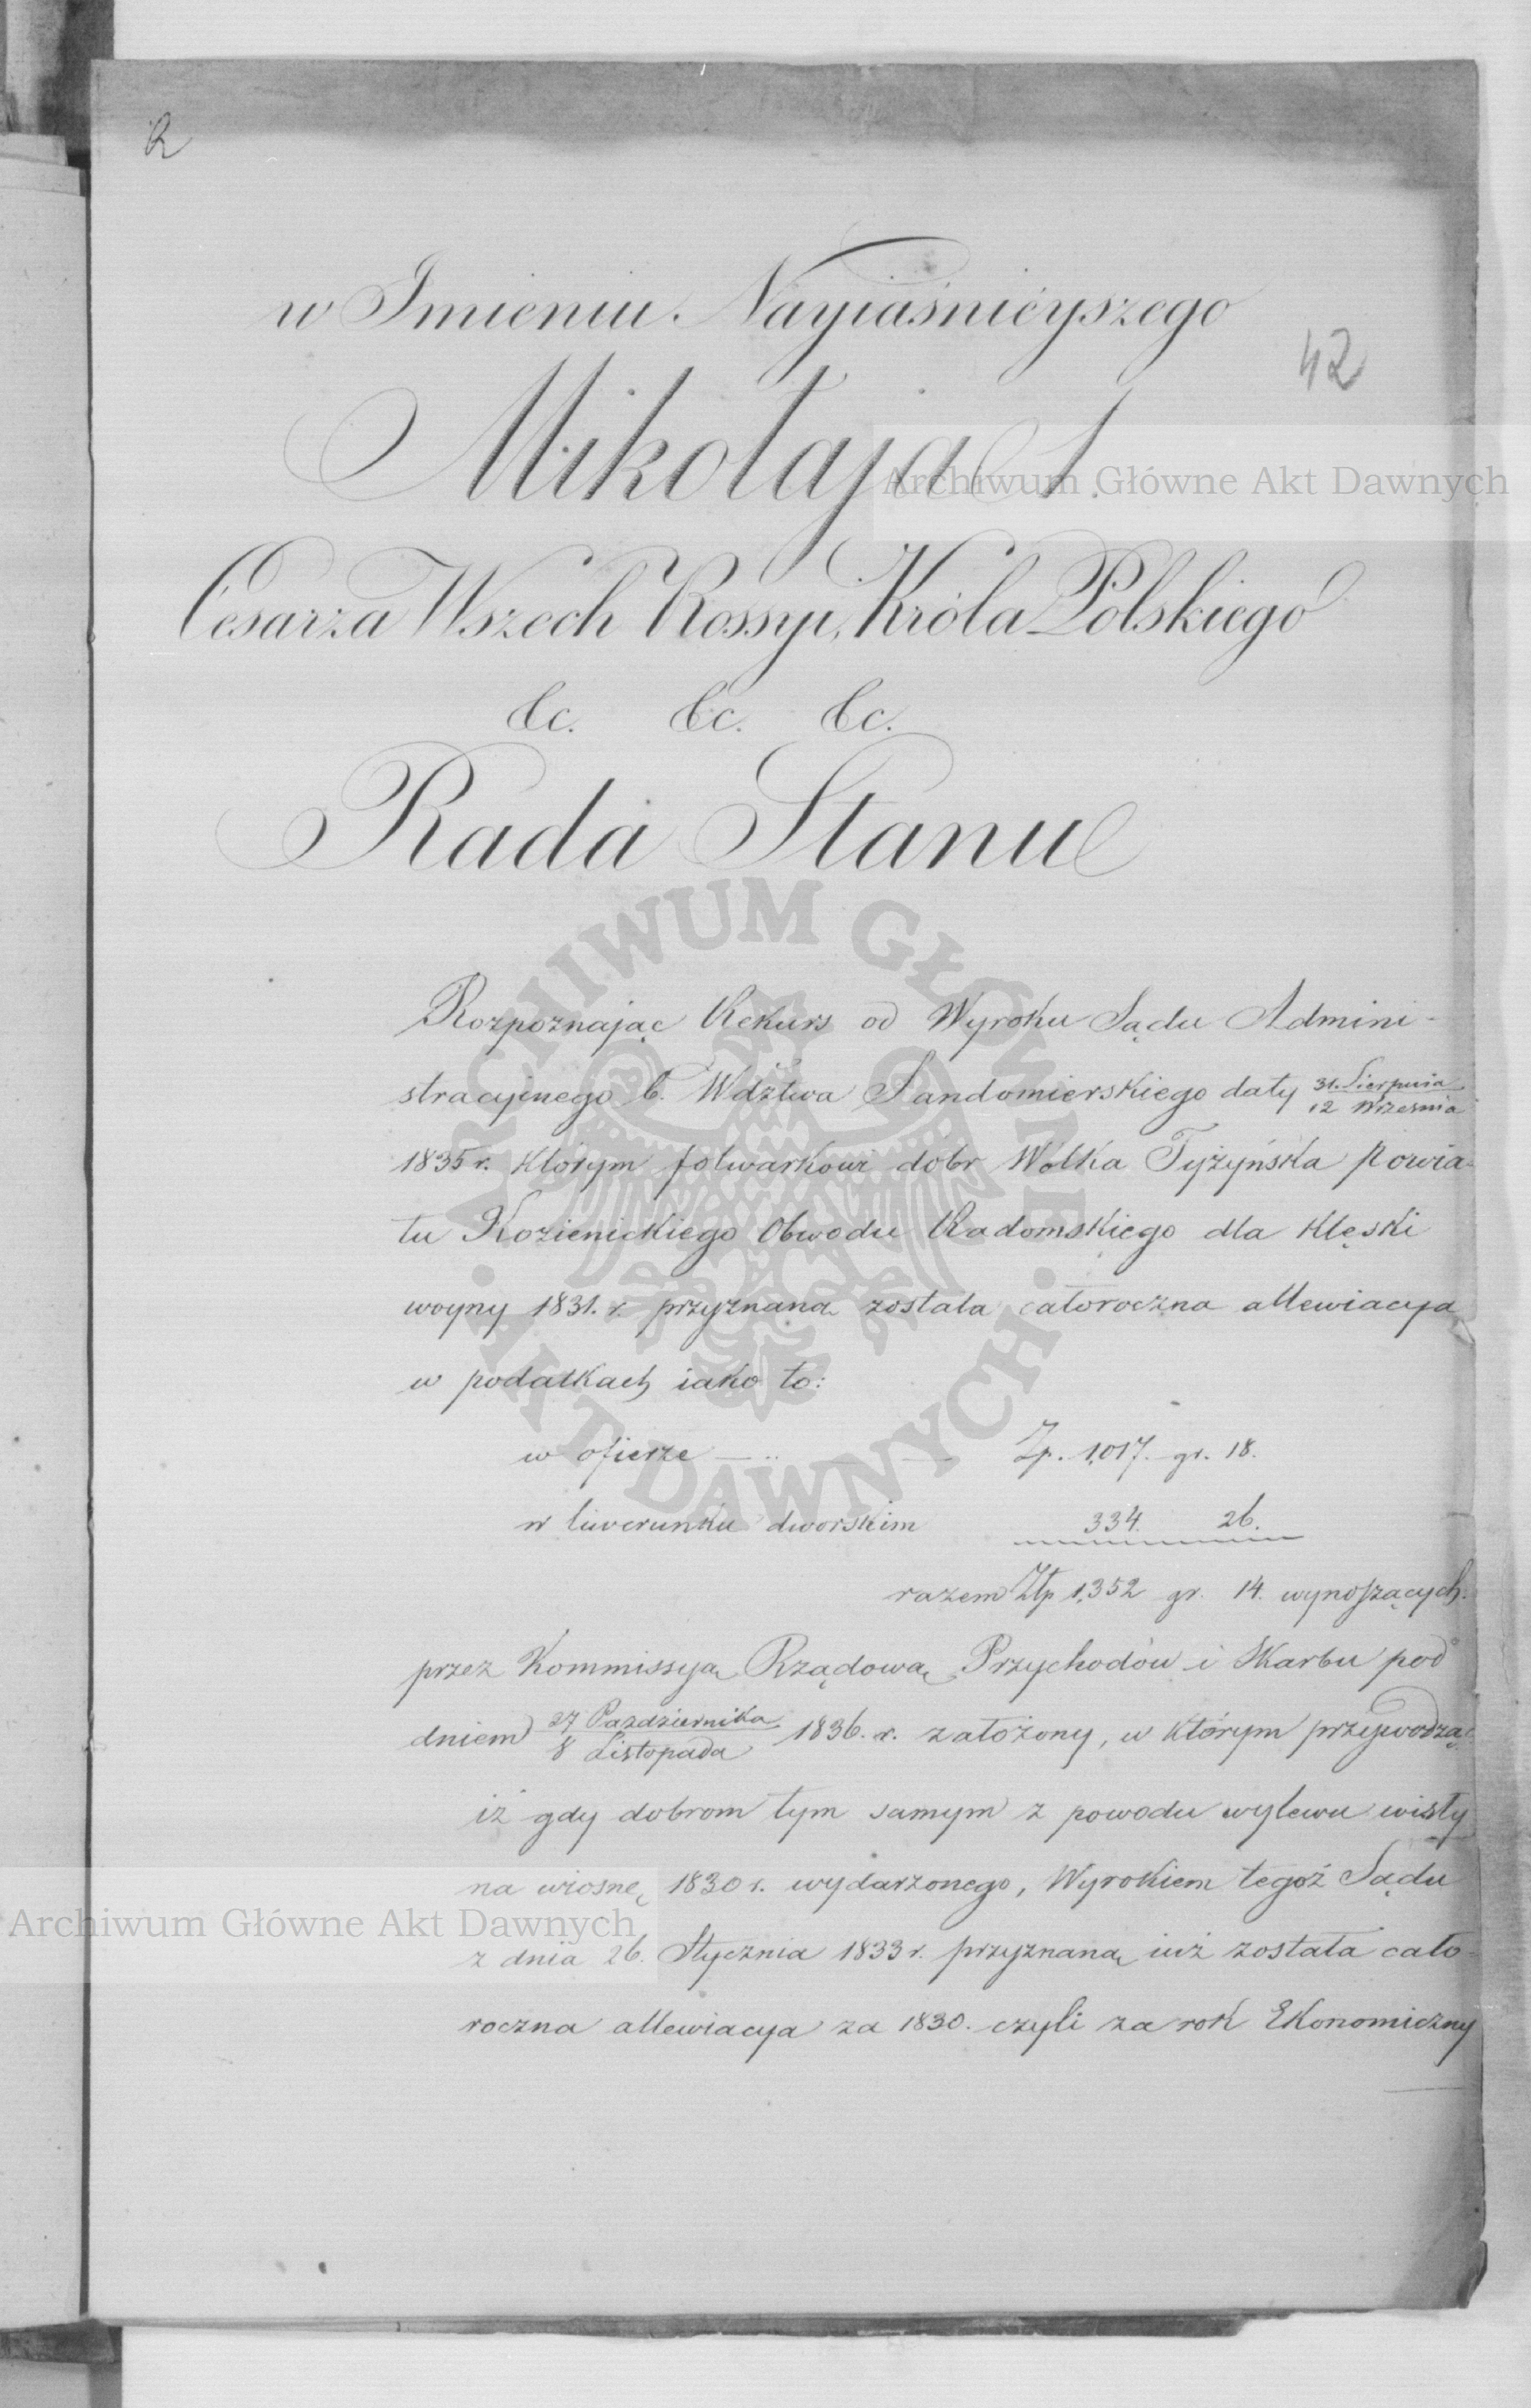 R
w Imieniu Nayiaśnieyszego
42
Mikołaja I.
Archiwum Główne Akt Dawnych
Cesarza Wszech Rossyi, Króla Polskiego
&c. &c. &c.
Rada Stanu
ARCHIWUM GŁÓWNE · AKT DAWNYCH ·
Rozpoznając Rekurs od Wyroku Sądu Admini-
stracyjnego b. Wdztwa Sandomierskiego daty 31. Sierpnia / 12 Września
1835 r. którym folwarkowi dóbr Wolka Tyżyńska Powia-
tu Kozienickiego Obwodu Radomskiego dla klęski
woyny 1831. r. przyznana została całoroczna allewiacya
w podatkach iako to:
w ofierze — Zp. 1,017. gr. 18.
w liwerunku dworskim 334. 26.
razem Złp 1,352 gr. 14. wynoszących.
przez Kommissyą Rządową Przychodów i Skarbu pod
dniem 27 Października / 8 Listopada 1836. r. założony, w którym przywodząc
iż gdy dobrom tym samym z powodu wylewu wisły
na wiosnę 1830 r. wydarzonego, Wyrokiem tegoż Sądu
Archiwum Główne Akt Dawnych
z dnia 26. Stycznia 1833 r. przyznaną iuż została cało-
roczna allewiacya za 1830. czyli za rok Ekonomiczny